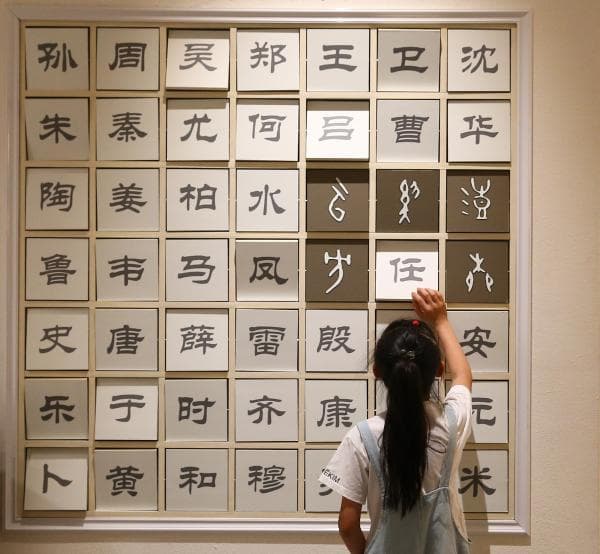 孙 周 吴 郑 王 卫 沈
朱 秦 尤 何 吕 曹 华
陶 姜 柏 水
鲁 韦 马 凤 任
史 唐 薛 雷 殷 安
乐 于 时 齐 康 元
卜 黄 和 穆 米